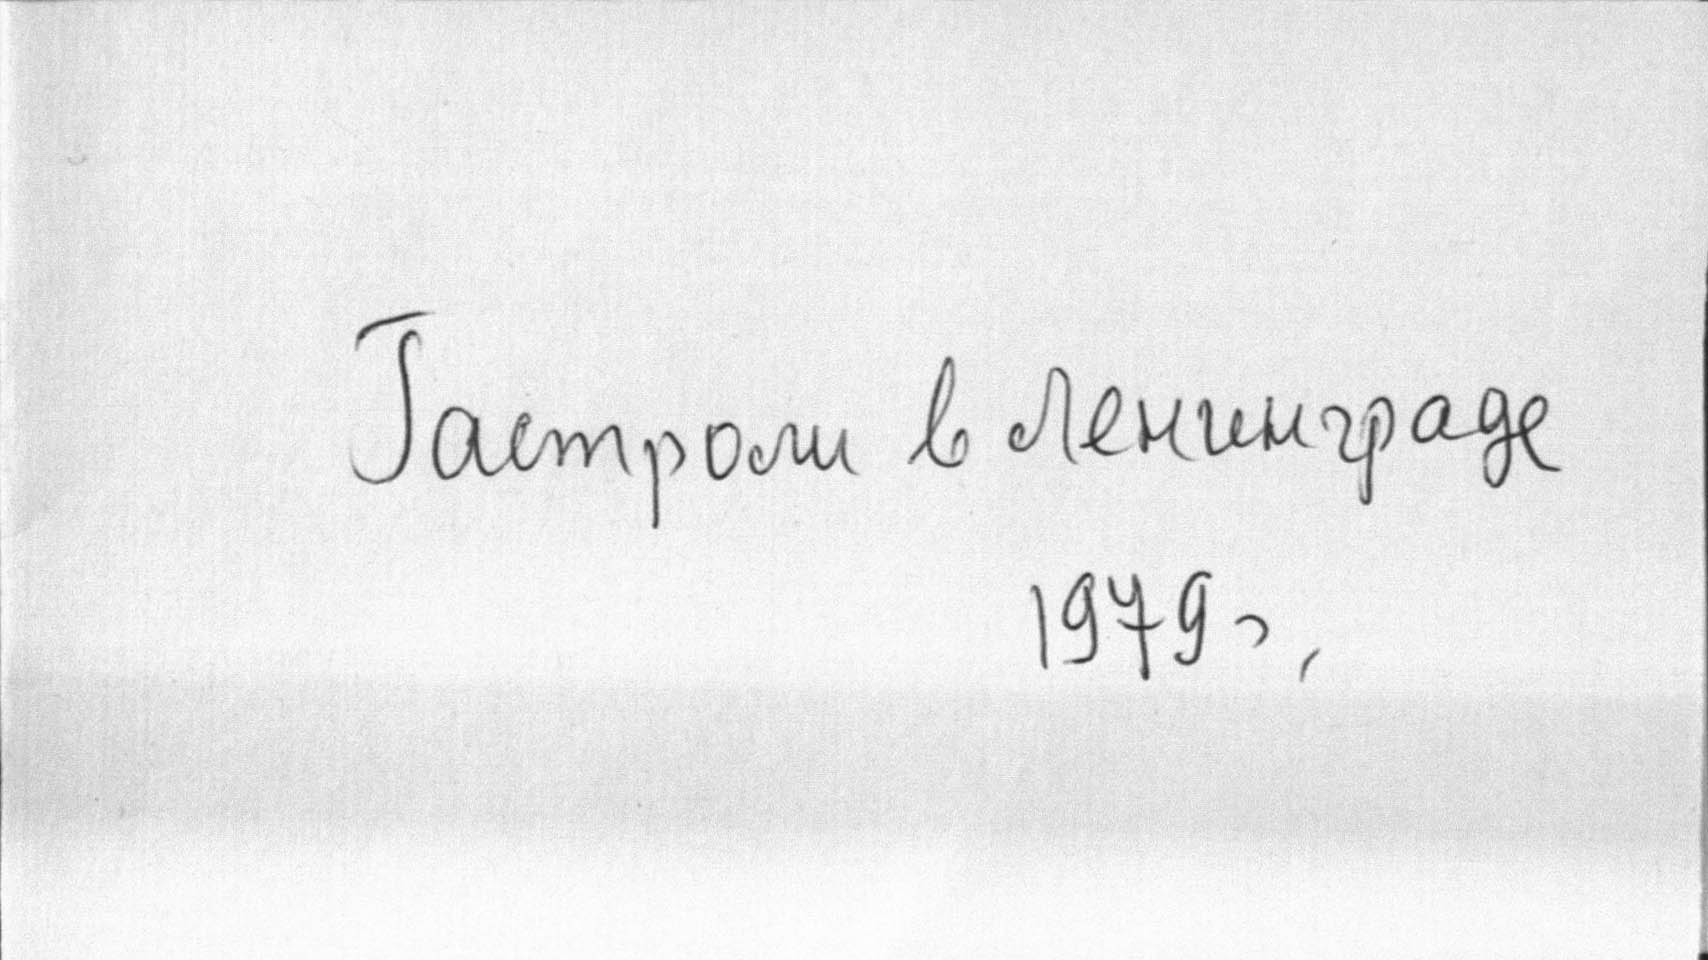 Гастроли в Ленинграде
1979 г.